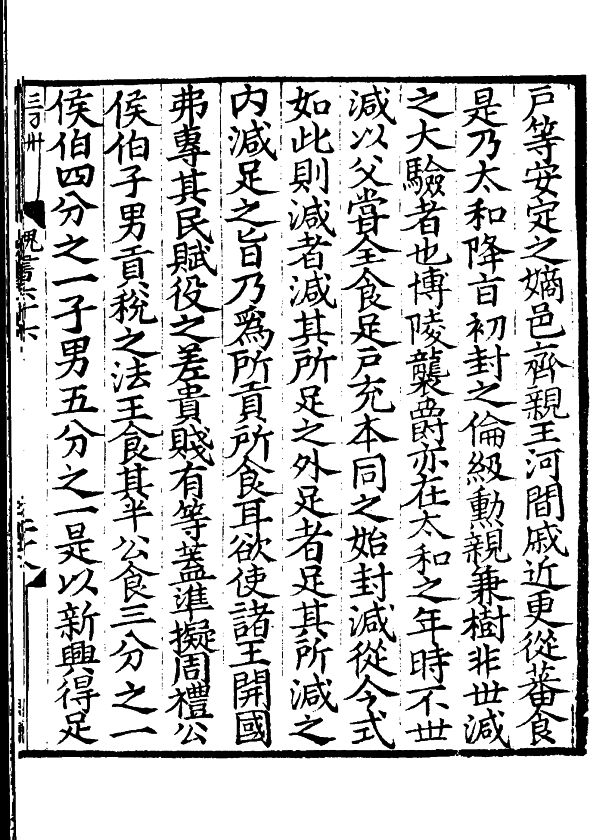 戸等安定之嫡邑齊親王河間戚近更從蕃食
是乃太和降旨初封之倫級勲親兼樹非世減
之大驗者也博陵襲爵亦在太和之年時不世
減以父嘗全食足戸充本同之始封減從今式
如此則減者減其所足之外足者足其所減之
内減足之旨乃爲所貢所食耳欲使諸王開國
弗專其民賦役之差貴賤有等蓋準擬周禮公
侯伯子男貢稅之法王食其半公食三分之一
侯伯四分之一子男五分之一是以新興得足